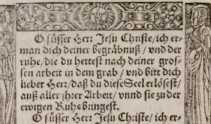 O süsser Herr Jesu Christe/ ich er-
man dich deiner begräbnuß / vnd der
ruhe, die du hettest nach deiner gros-
sen arbeit in dem grab / vnd bitt dich
lieber Herr/ daß du diese Seel erlösest/
auß aller ihrer Arbeit/ vnnd sie zu der
ewigen Ruhe bringest.
O süsser Herr Jesu Christe/ ich er-